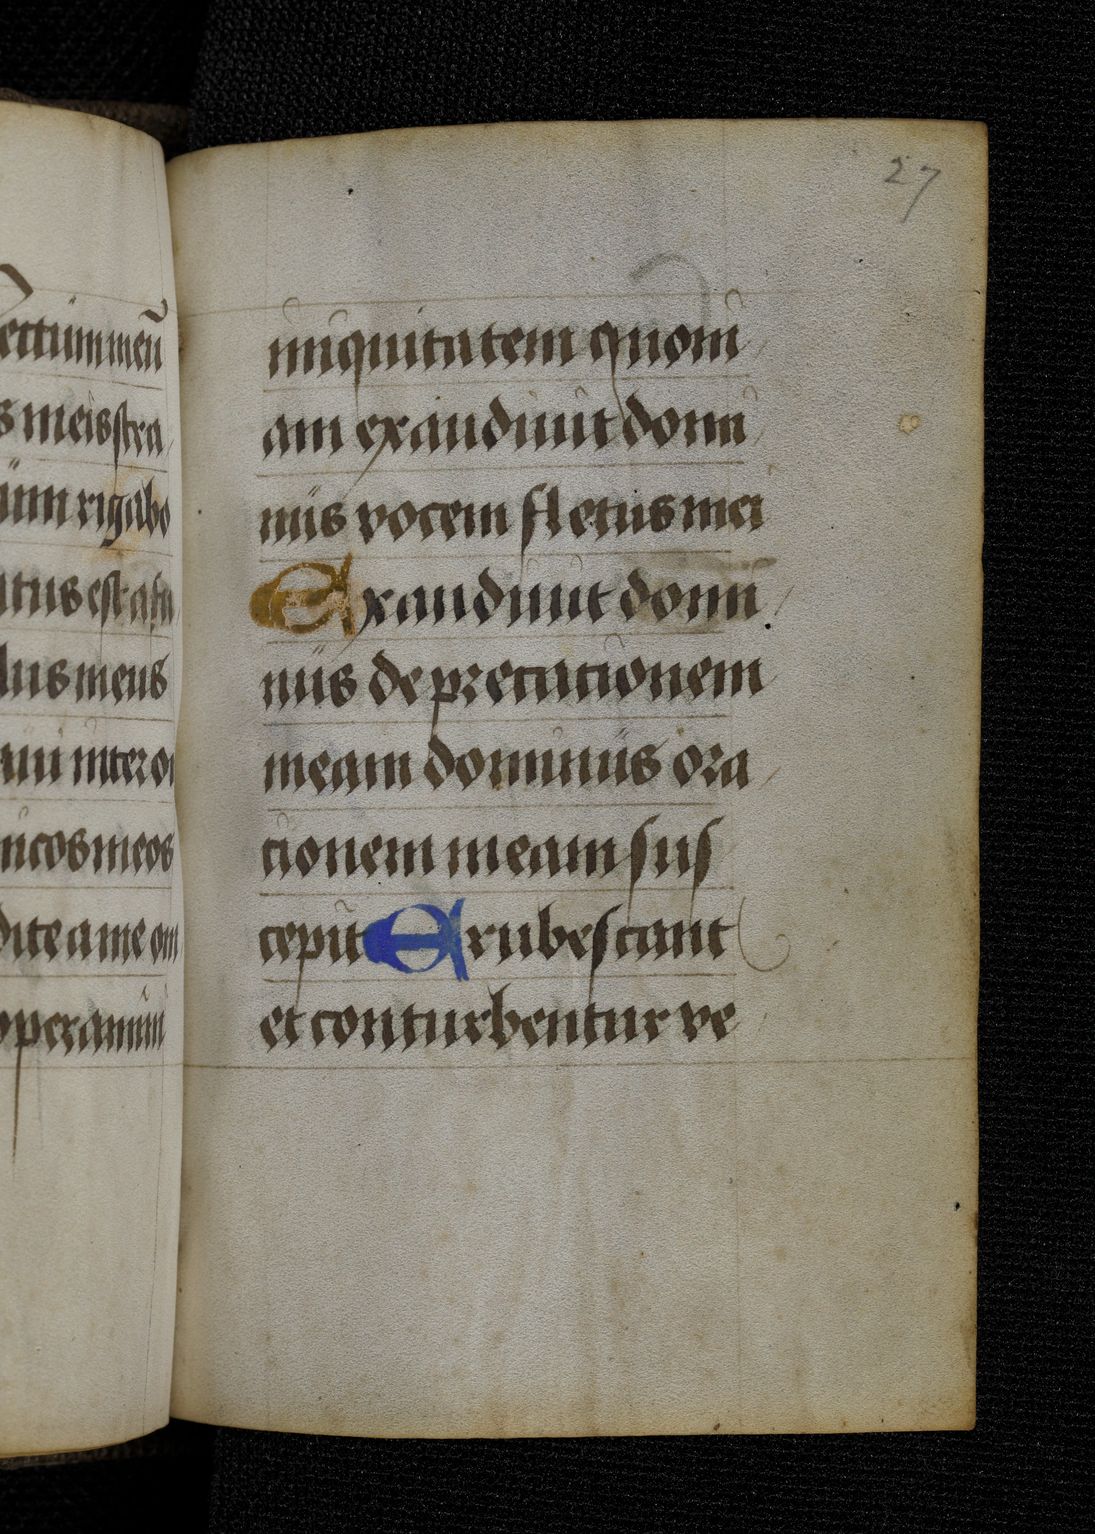 ectum meū
s meis stra
um rigabo
atus est a fu
lus meus
mi inter o
micos meos
dite a me om
operamini
27
iniquitatem quoni
am exaudiuit domi
nus vocem fletus mei
Exaudiuit domi
nus deprecationem
meam dominus ora
cionem meam sus
cepit Erubescant
et conturbentur ve